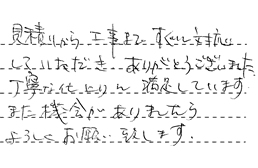 見積りから工事まですぐに対応
していただき ありがとうございました
丁寧な仕上りに 満足しています
また機会がありましたら
よろしくお願い致します.